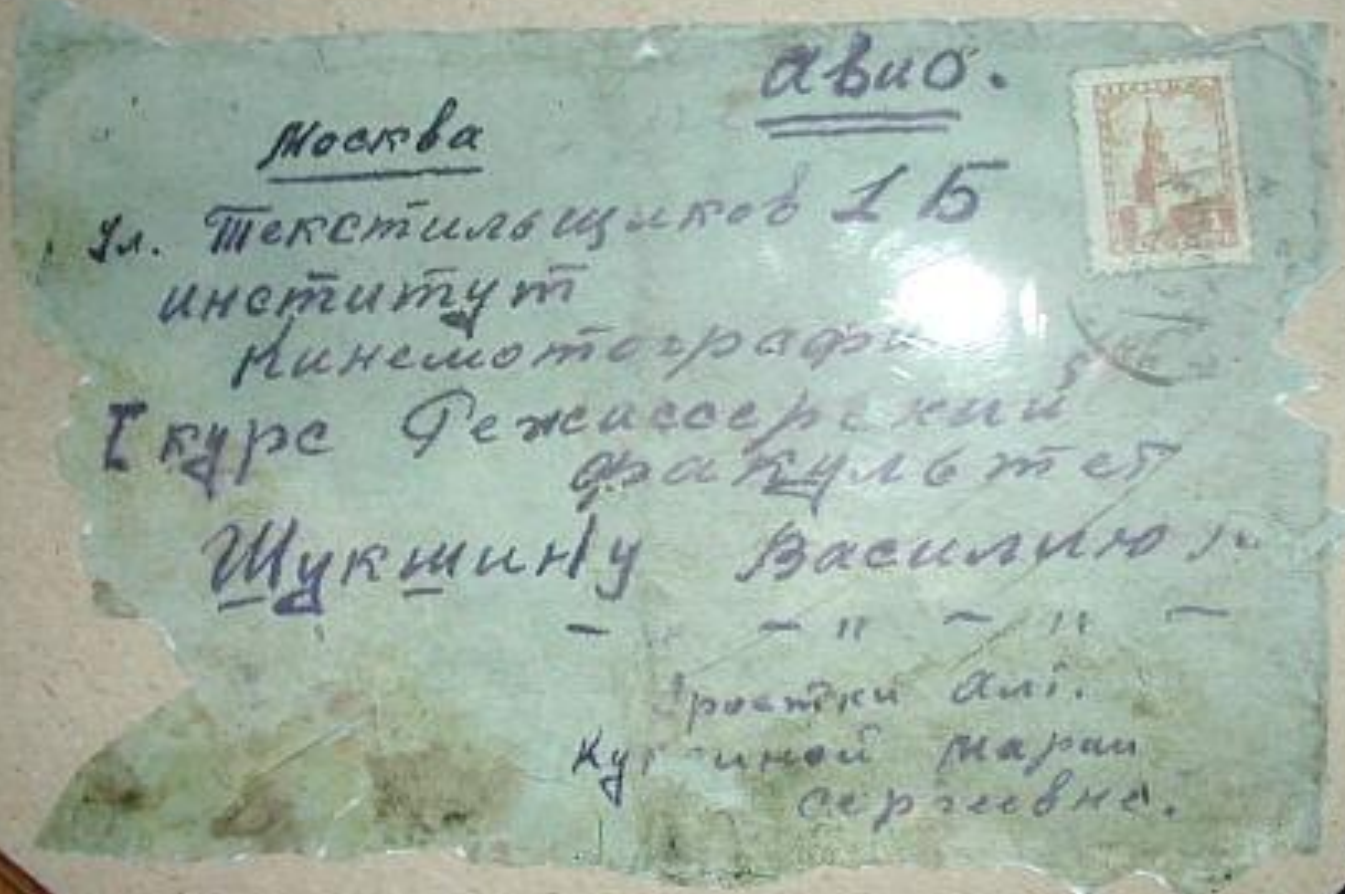 Авио.
Москва
ул. Текстильщиков 1 Б
институт
Кинемотографи
I курс Режиссерский
факультет
Шукшину Василию
— " — " —
Сростки Алт.
Марии
Сергеевне.